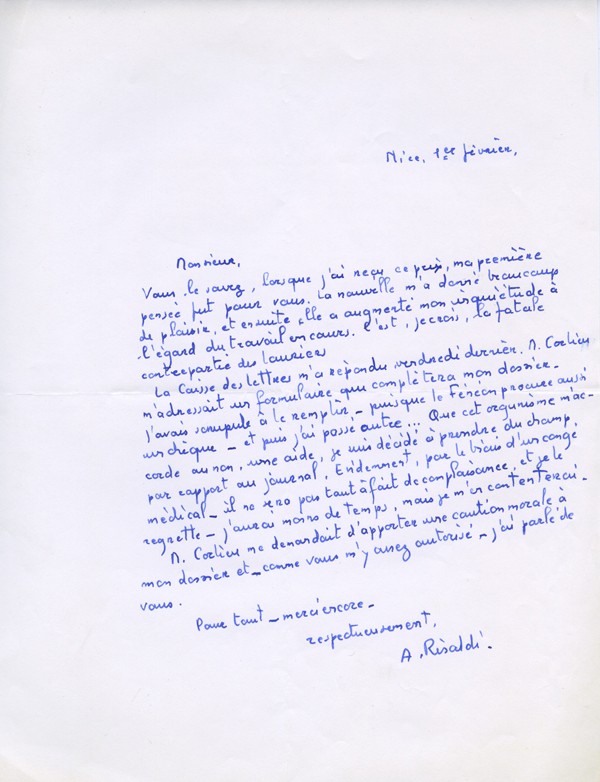 Nice, 1er février,
Monsieur,
Vous le savez, lorsque j'ai reçu ce prix, ma première
pensée fut pour vous. La nouvelle m'a donné beaucoup
de plaisir, et ensuite elle a augmenté mon inquiétude à
l'égard du travail en cours. C'est, je crois, la fatale
contrepartie des lauriers
La Caisse des lettres m'a répondu vendredi dernier. M. Cortieu
m'adressait un formulaire qui complètera mon dossier.
j'avais scrupule à le remplir – puisque le Fénéon procure aussi
un chèque – et puis j'ai passé outre... Que cet organisme m'ac-
corde ou non, une aide, je suis décidé à prendre du champ,
par rapport au journal. Evidemment, par le biais d'un congé
médical – il ne sera pas tout à fait de complaisance, et je le
regrette – j'aurai moins de temps, mais je m'en contenterai.
M. Cortieu me demandait d'apporter une caution morale à
mon dossier et – comme vous m'y avez autorisé – j'ai parlé de
vous.
Pour tout – merci encore –
respectueusement,
A. Rinaldi.